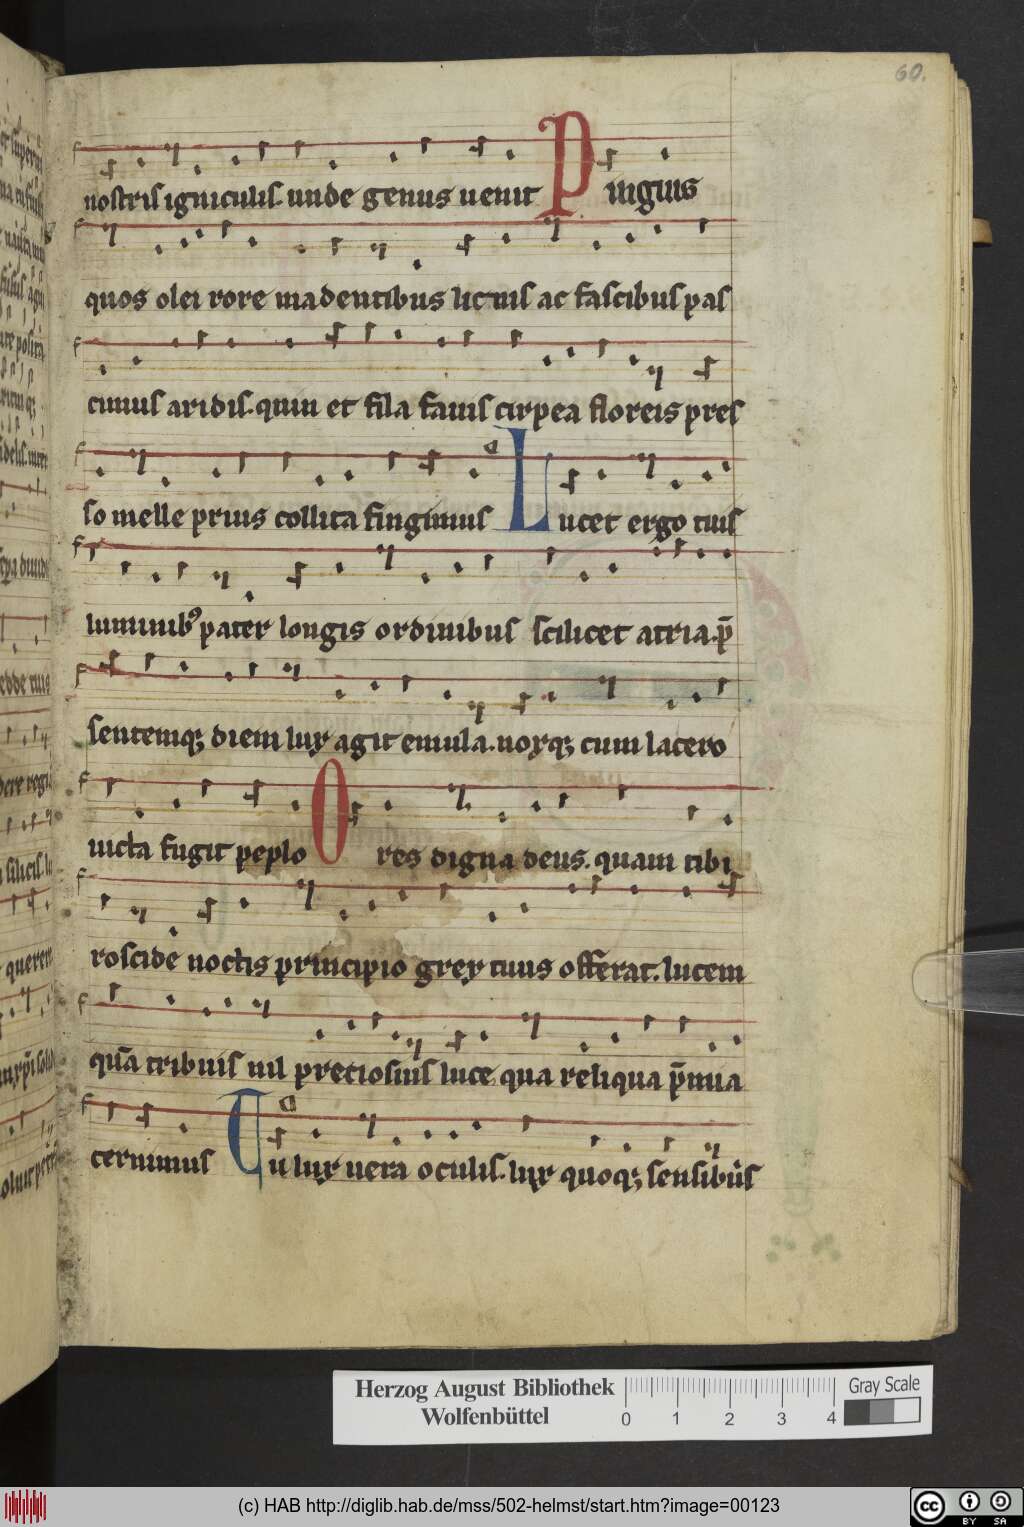 60.
nostris igniculis. unde genus uenit Pinguis
quos olei rore madentibus licnis ac fascibus pas
cimus aridis. quin et fila fauis cirpea floreis pres
so melle prius collita fingimus Lucet ergo tuis
luminibꝰ pater longis ordinibus scilicet atria. p̄
sentemq; diem lux agit emula. noxq; cum lacero
uicta fugit peplo O res digna deus. quam tibi
roscide noctis principio grex tuus offerat. lucem
quā tribuis nil preciosius luce qua reliqua p̄mia
cernimus Tu lux uera oculis. lux quoq; sensibus
Herzog August Bibliothek
Wolfenbüttel
0 1 2 3 4
Gray Scale
(c) HAB http://diglib.hab.de/mss/502-helmst/start.htm?image=00123
cc BY SA